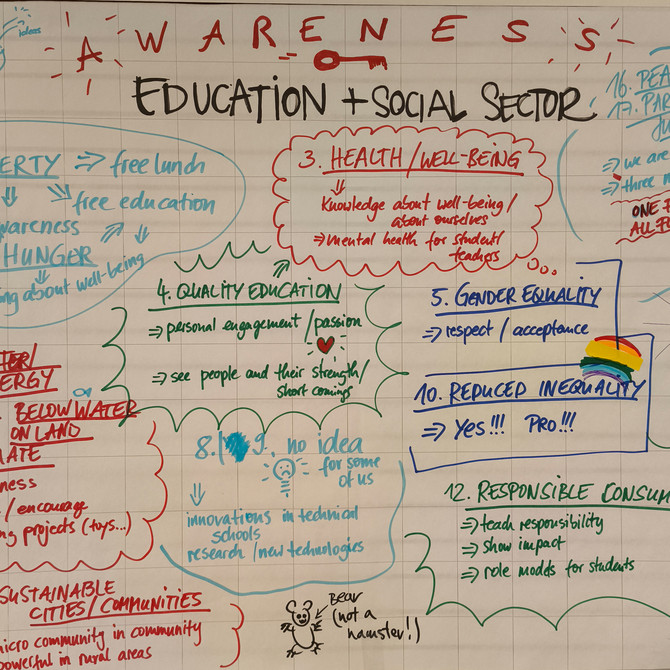 ideas
AWARENESS
EDUCATION + SOCIAL SECTOR
16. PEA
17. PAR
ERTY => free lunch
free education
wareness
HUNGER
ng about well-being
3. HEALTH/WELL-BEING
Knowledge about well-being/
about ourselves
=> mental health for student/
teachers
=> we are
=> three
ONE F
ALL F
4. QUALITY EDUCATION
=> personal engagement/passion
=> see people and their strength/
short comings
5. GENDER EQUALITY
=> respect/acceptance
10. REDUCED INEQUALITY
=> Yes!!! PRO!!!
TER/
ERGY
BELOW WATER
ON LAND
ATE
ness
/encourage
ng projects (toys...)
8.| 9. no idea
for some
of us
innovations in technical
schools
research/new technologies
12. RESPONSIBLE CONSUM
=> teach responsibility
=> show impact
=> role models for students
SUSTAINABLE
CITIES/COMMUNITIES
icro community in community
powerful in rural areas
Bear
(not a
hamster!)